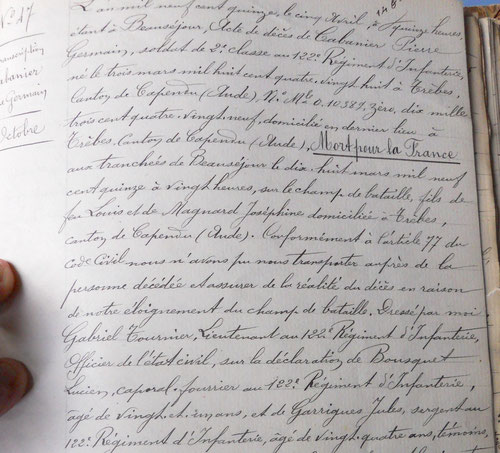 N° 17
Transcription
Cabanier
Germain
Octobre
L'an mil neuf cent quinze, le cinq Avril, à quinze heures
étant à Beauséjour, Acte de décès de Cabanier Pierre
Germain, soldat de 2e classe au 122e Régiment d'Infanterie,
né le trois mars mil huit cent quatre-vingt huit à Trèbes,
Canton de Capendu (Aude), N° Mle 0.10.389, zéro, dix mille
trois cent quatre-vingt-neuf, domicilié en dernier lieu à
Trèbes, Canton de Capendu (Aude), Mort pour la France
aux tranchées de Beauséjour le dix-huit mars mil neuf
cent quinze à vingt heures, sur le champ de bataille, fils de
feu Louis et de Magnard Joséphine domiciliée à Trèbes,
canton de Capendu (Aude). Conformément à l'article 77 du
code Civil nous n'avons pu nous transporter auprès de la
personne décédée et assurer de la réalité du décès en raison
de notre éloignement du champ de bataille. Dressé par moi
Gabriel Tournier, Lieutenant au 122e Régiment d'Infanterie,
Officier de l'état civil, sur la déclaration de Bousquet
Lucien, caporal-fourrier au 122e Régiment d'Infanterie,
âgé de vingt-et-un ans, et de Garrigues Jules, sergent au
122e Régiment d'Infanterie, âgé de vingt-quatre ans, témoins,